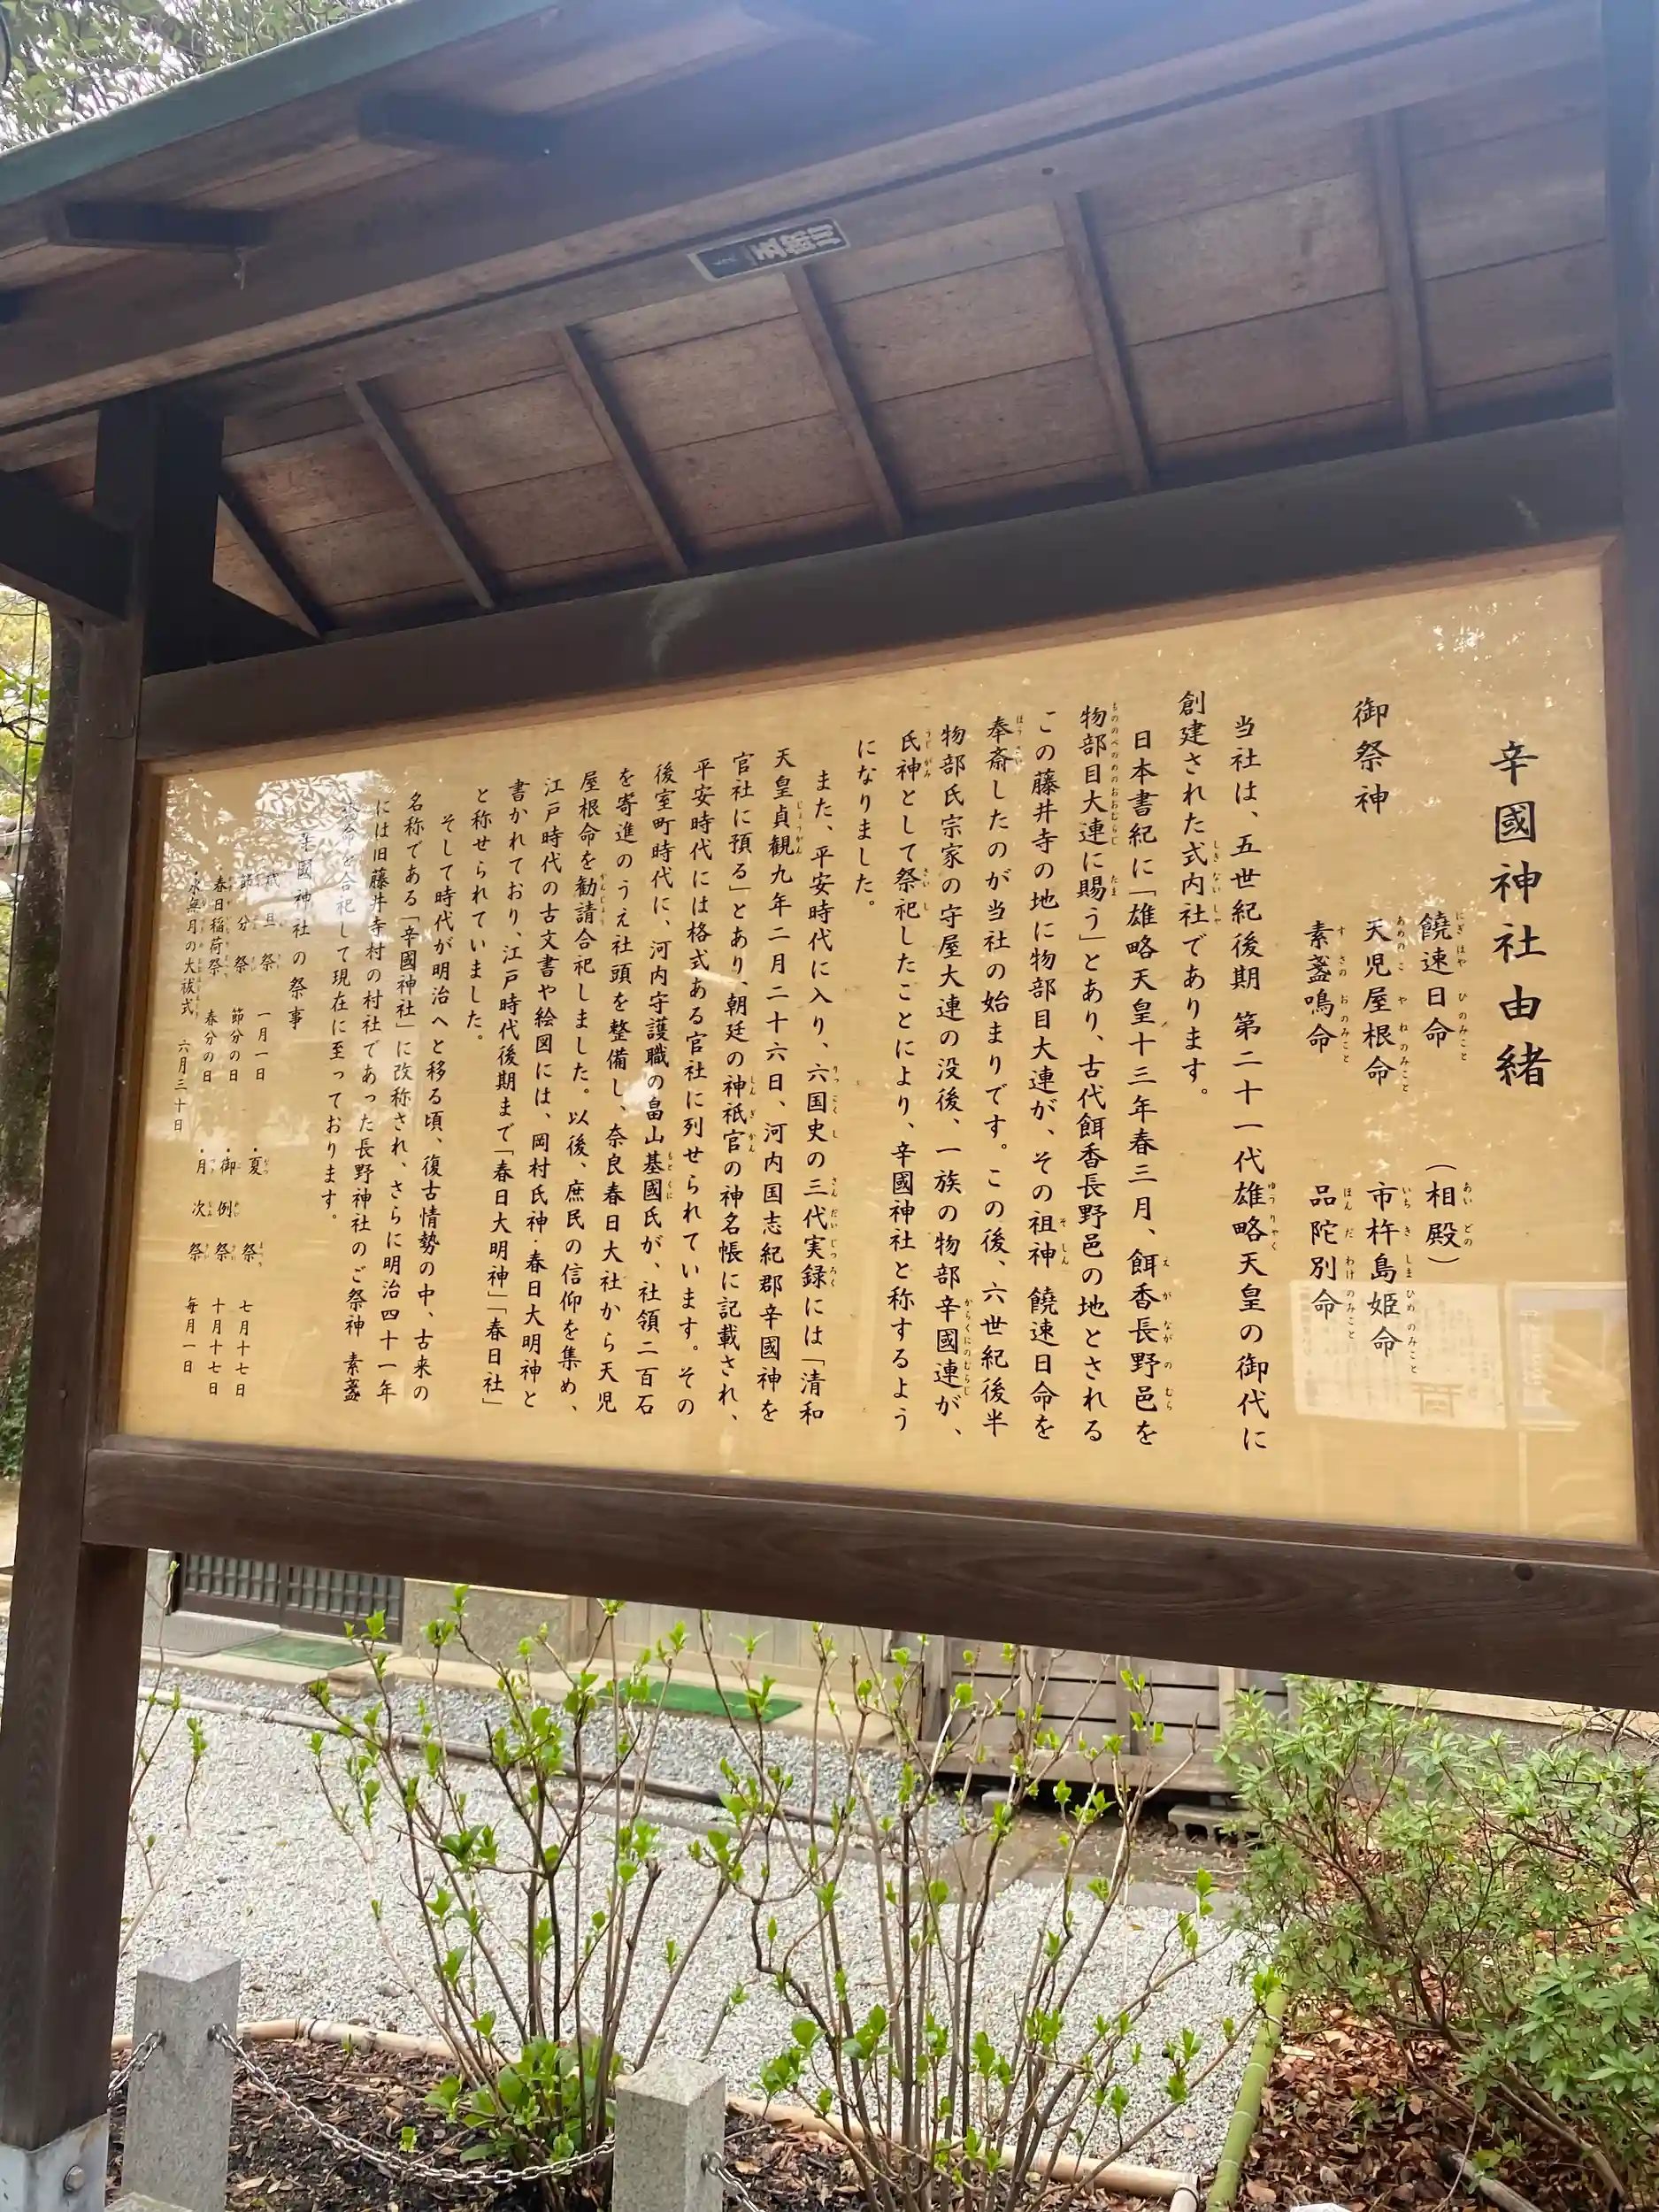 辛國神社由緒
御祭神
饒速日命 (相殿)
天児屋根命 市杵島姫命
素盞嗚命 品陀別命
当社は、五世紀後期 第二十一代雄略天皇の御代に
創建された式内社であります。
日本書紀に「雄略天皇十三年春三月、餌香長野邑を
物部目大連に賜う」とあり、古代餌香長野邑の地とされる
この藤井寺の地に物部目大連が、その祖神 饒速日命を
奉斎したのが当社の始まりです。この後、六世紀後半
物部氏宗家の守屋大連の没後、一族の物部辛國連が、
氏神として祭祀したことにより、辛國神社と称するよう
になりました。
また、平安時代に入り、六国史の三代実録には「清和
天皇貞観九年二月二十六日、河内国志紀郡辛國神を
官社に預る」とあり、朝廷の神祇官の神名帳に記載され、
平安時代には格式ある官社に列せられています。その
後室町時代に、河内守護職の畠山基國氏が、社領二百石
を寄進のうえ社頭を整備し、奈良春日大社から天児
屋根命を勧請合祀しました。以後、庶民の信仰を集め、
江戸時代の古文書や絵図には、岡村氏神・春日大明神と
書かれており、江戸時代後期まで「春日大明神」「春日社」
と称せられていました。
そして時代が明治へと移る頃、復古情勢の中、古来の
名称である「辛國神社」に改称され、さらに明治四十一年
には旧藤井寺村の村社であった長野神社のご祭神 素盞
嗚命を合祀して現在に至っております。
辛國神社の祭事
歳旦祭 一月一日 ・夏祭 七月十七日
節分祭 節分の日 ・御例祭 十月十七日
春日稲荷祭 春分の日 ・月次祭 毎月一日
・水無月の大祓式 六月三十日